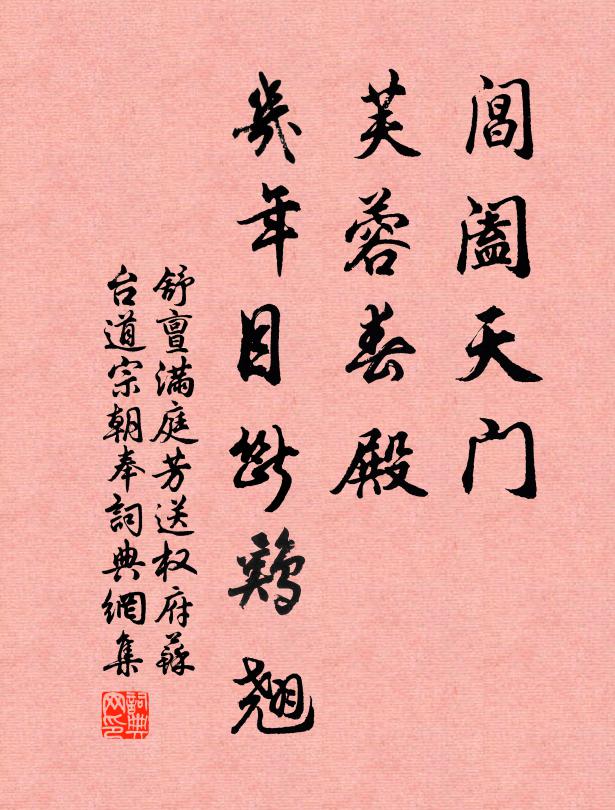 閶闔天门
芙蓉春殿
幾年目断鶏翘
舒亶满庭芳送权府蘇
台道宗朝奉詞典網集
詞典网印